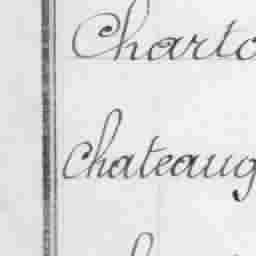 Charto
chateaug